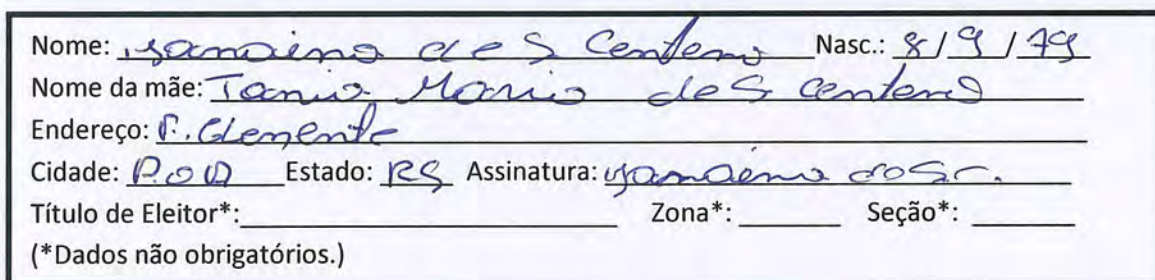 Nome: Janaina de S Centeno Nasc.: 8/9/79
Nome da mãe: Tania Maria de S Centeno
Endereço: P. Clemente
Cidade: POA Estado: RS Assinatura: Janaina do S. C.
Título de Eleitor*: Zona*: Seção*:
(*Dados não obrigatórios.)